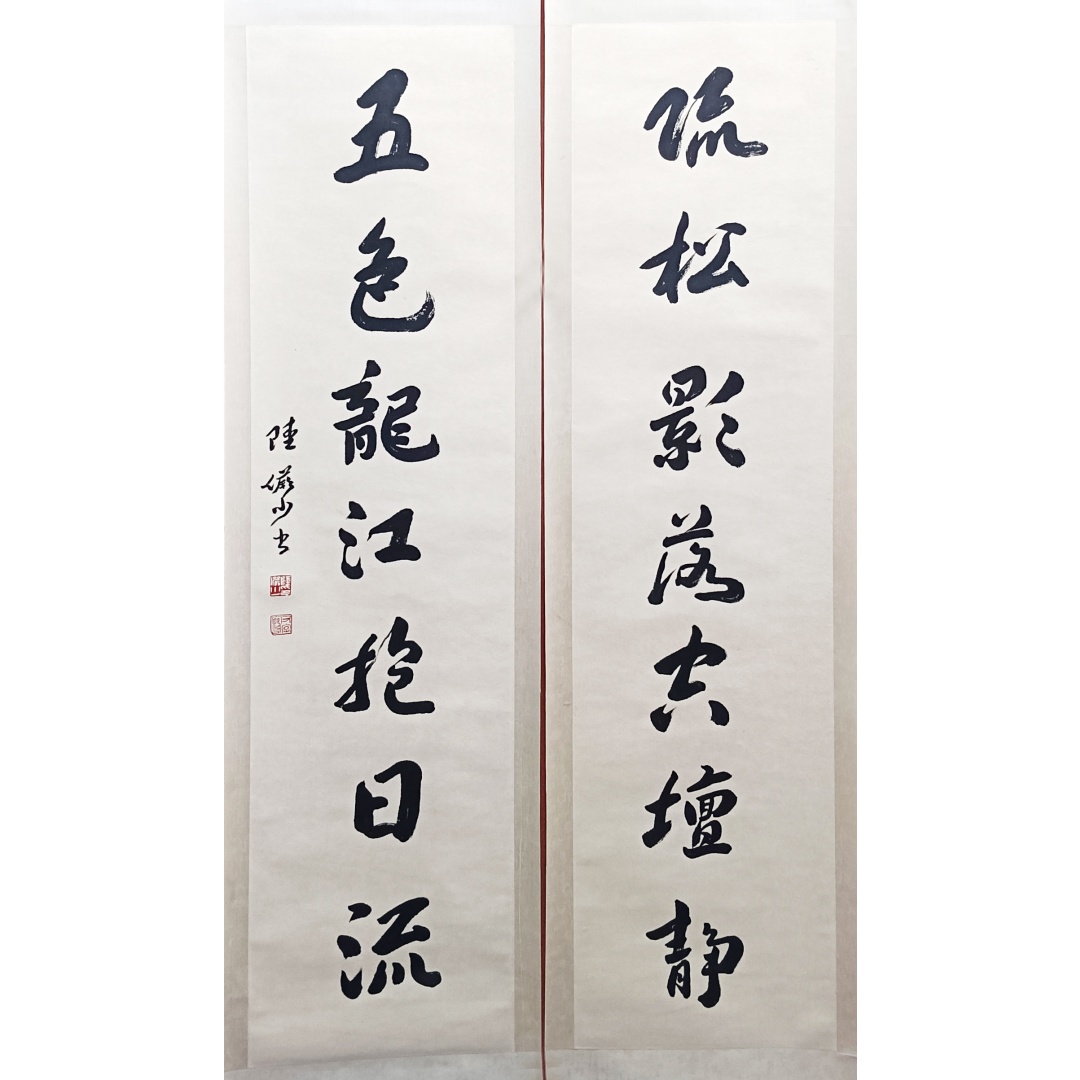 疏松影落空壇静
五色龍江抱日流
陸儼少书